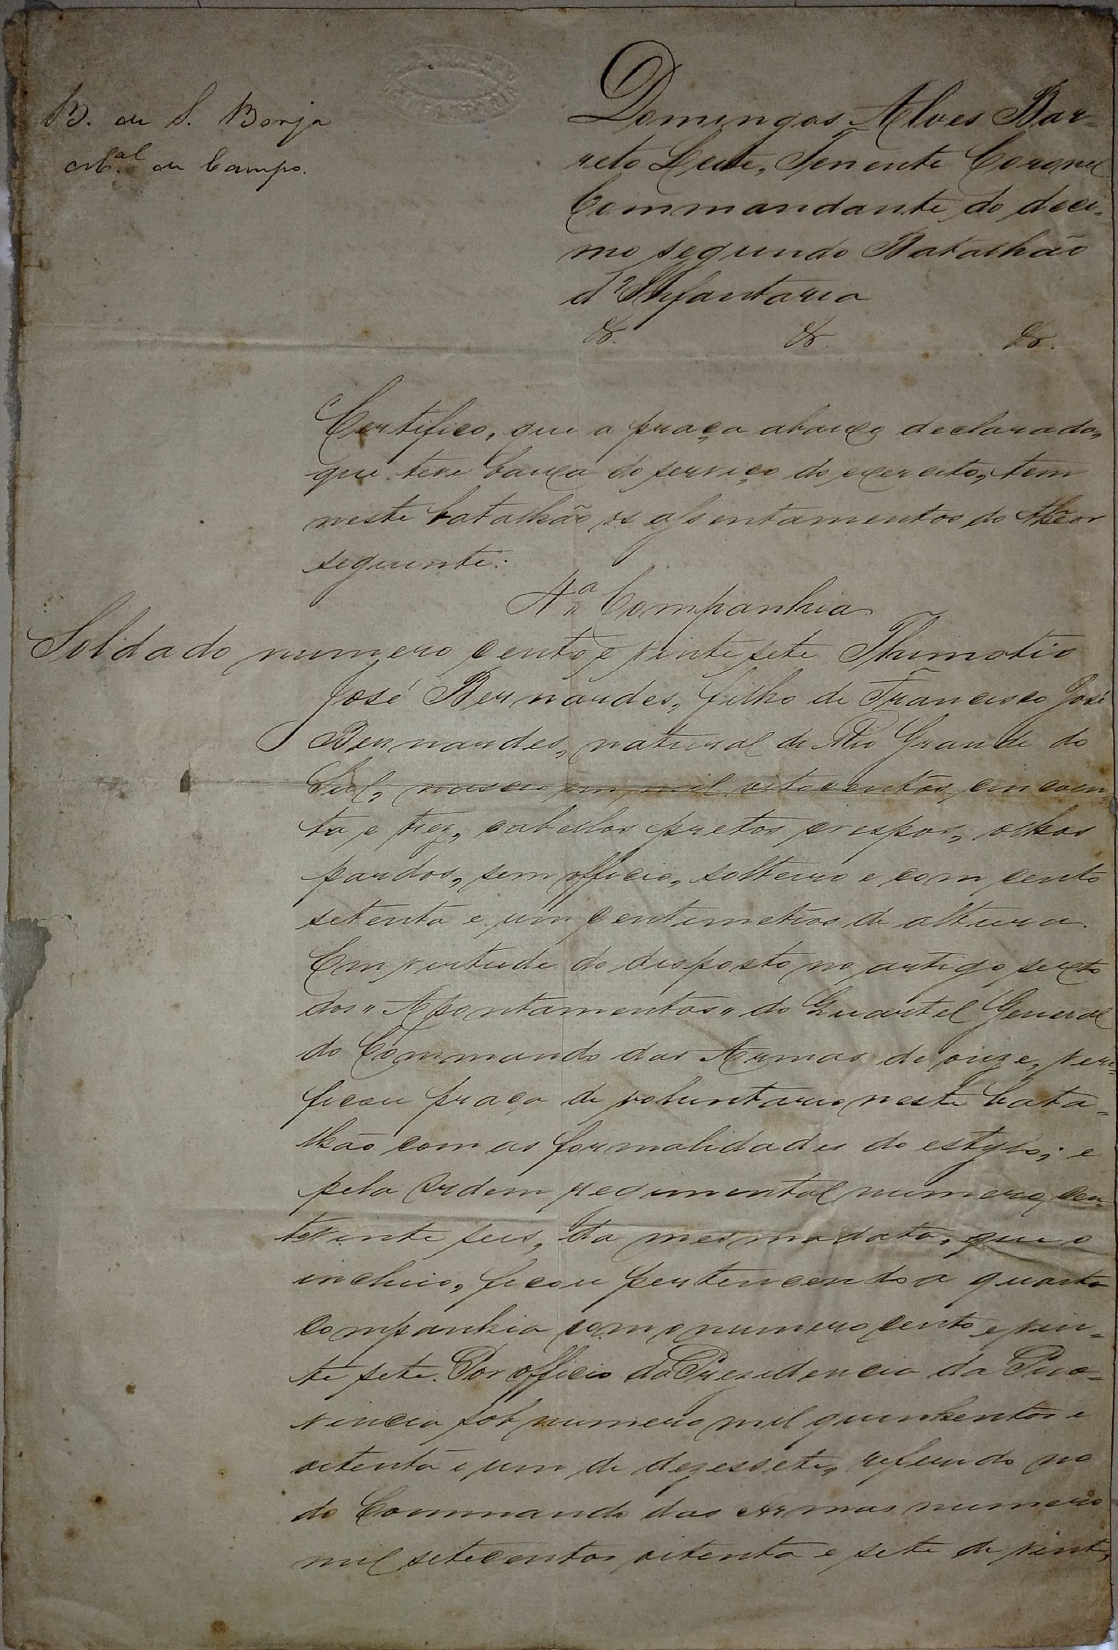 B. de S. Borja
M.al de Campo.
Domingos Alves Bar-
reto Leite, Tenente Coronel
Commandante do deci-
mo segundo Batalhão
d'Infantaria
&. &. &.
Certifico, que a praça abaixo declarada,
que teve baixa do serviço do exercito, tem
neste batalhão os assentamentos do theor
seguinte:
4ª Companhia
Soldado numero cento e vinte sete Thimotio
José Bernardes, filho de Francisco José
Bernardes, natural do Rio Grande do
Sul, nasceu em mil oitocentos cincoen-
ta e trez, cabellos pretos crespos, olhos
pardos, sem officio, solteiro e com cento
setenta e um centimetros de altura.
Em virtude do disposto no artigo sexto
dos "Apontamentos" do Quartel General
do Commando das Armas de onze, veri-
ficou praça de voluntario neste bata-
lhão com as formalidades do estylo; e
pela ordem regimental numero cen-
to vinte seis, da mesma data, que o
incluio, ficou pertencendo a quarta
companhia com o numero cento e vin-
te sete. Por officio da Presidencia da Pro-
vincia sob numero mil quinhentos e
oitenta e um de dezessete, referido no
do Commando das Armas numero
mil setecentos oitenta e sete de vinte